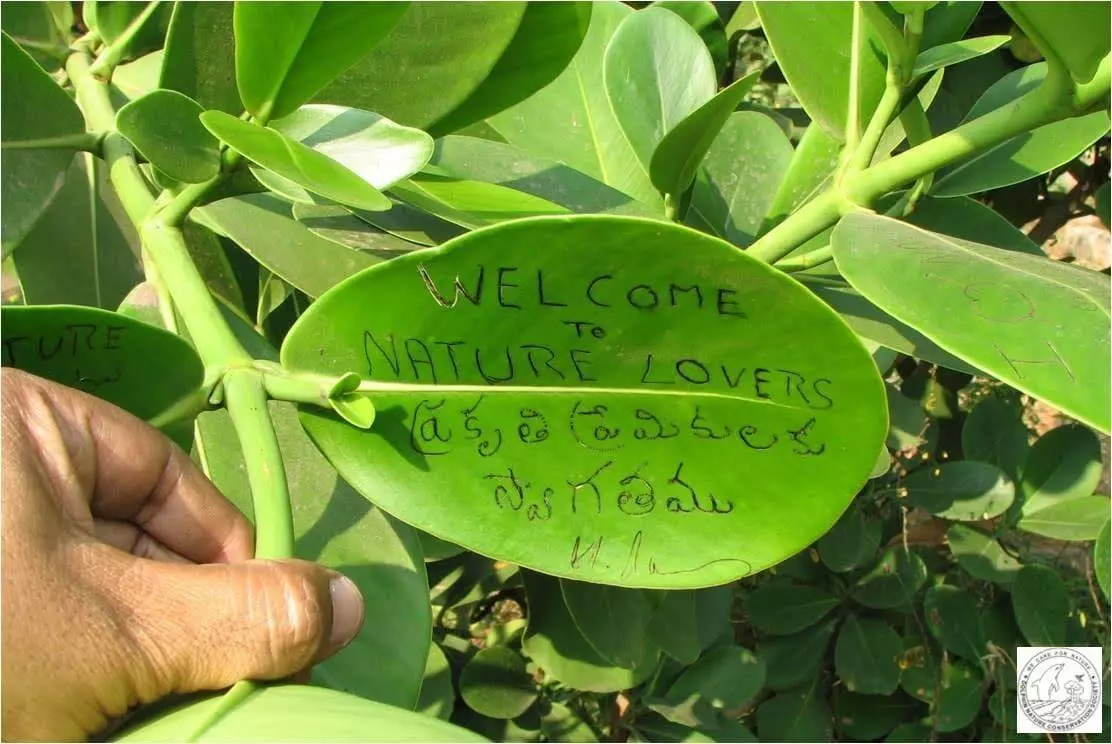 WELCOME
To
NATURE LOVERS
ప్రకృతి ప్రేమికులకు
స్వాగతము
TURE
WE CARE FOR NATURE
DOLPHIN NATURE CONSERVATION SOCIETY